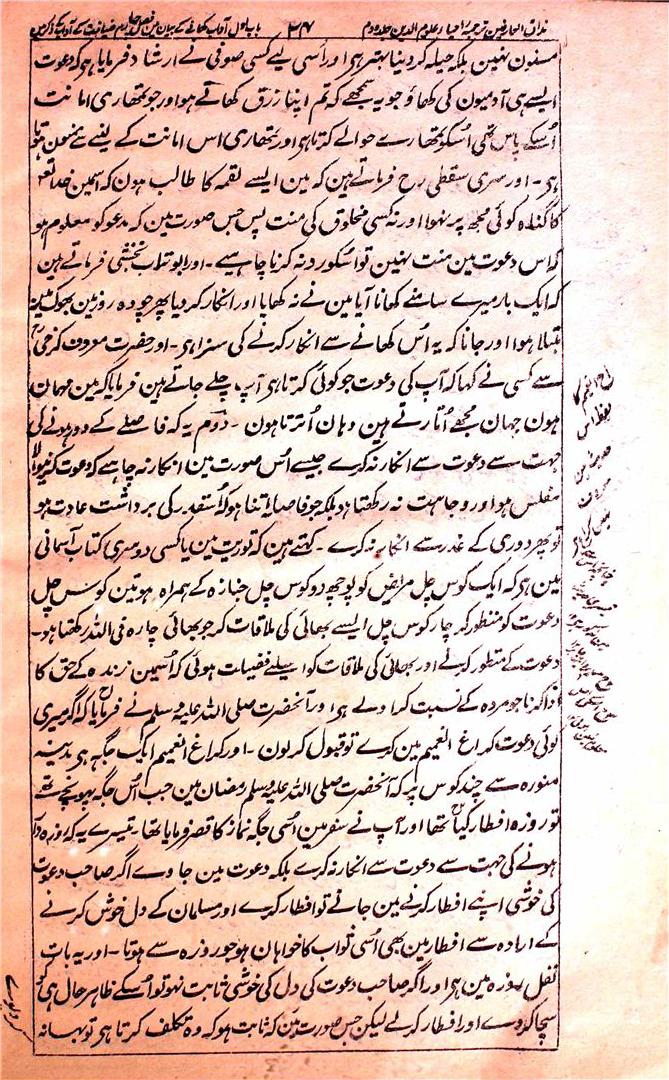 مذاق العارفین ترجمۂ احیاء علوم الدین جلد دوم ۳۴ باب اول آداب کھانے کے بیان مین فصل چہارم ضیافت کے آداب کے ذکر مین
مسنون نہین بلکہ حیلہ کر دینا بہتر ہی اور اسی لیے کسی صوفی نے ارشاد فرمایا ہی کہ دعوت
ایسے ہی آدمیون کی کھاؤ جو یہ سمجھے کہ تم اپنا رزق کھاتے ہو اور جو تمھاری امانت
اُسکے پاس تھی اُسکو تمھارے حوالے کرتا ہی اور تمھاری اس امانت کے لینے سے ممنون ہوتا
ہی۔ اور سری سقطی رح فرماتے ہین کہ مین ایسے لقمہ کا طالب ہون کہ اسمین خداتعہ
کا گناہ کوئی مجھ پر نہو اور نہ کسی مخلوق کی منت پس جس صورت مین کہ مدعو کو معلوم ہو
کہ اس دعوت مین منت نہین تو اسکو رد نہ کرنا چاہیے۔ اور ابو تراب نخشبی فرماتے ہین
کہ ایک بار میرے سامنے کھانا آیا مین نے نہ کھایا اور انکار کر دیا پھر چودہ روز مین بھوک مین
مبتلا ہوا اور جانا کہ یہ اُس کھانے سے انکار کرنے کی سزا ہی۔ اور حضرت معروف کرخی رح
سے کسی نے کہا کہ آپ کی دعوت جو کوئی کرتا ہی آپ چلے جاتے ہین فرمایا کہ مین مہمان
ہون جہان مجھے اُتارتے ہین وہان اُترتا ہون۔ دوم یہ کہ فاصلے کے دور ہونے کی
جہت سے دعوت سے انکار نہ کرے جیسے اُس صورت مین انکار نہ چاہیے کہ دعوت کرنیوالا
مفلس ہو اور وجاہت نہ رکھتا ہو بلکہ جو فاصلہ اتنا ہو کہ اُسقدر کی برداشت عادت ہو
تو پھر دوری کے عذر سے انکار نہ کرے۔ کہتے ہین کہ توریت مین یا کسی دوسری کتاب آسمانی
مین ہی کہ ایک کوس چل مریض کو پوچھ دو کوس چل جنازہ کے ہمراہ ہو تین کوس چل
دعوت کو منظور کر چار کوس چل ایسے بھائی کی ملاقات کر جو بھائی چارہ فی اللہ رکھتا ہو۔
دعوت کے منظور کرنے اور بھائی کی ملاقات کو اسلیے فضیلت ہوئی کہ اُسمین زندہ کے حق کا
ادا کرنا جو مردہ کے نسبت کر اولے ہی اور آنحضرت صلی اللہ علیہ وسلم نے فرمایا کہ اگر میری
کوئی دعوت کراع الغمیم مین کرے تو قبول کر لون۔ اور کراع الغمیم ایک جگہ ہی مدینہ
منورہ سے چند کوس پر کہ آنحضرت صلی اللہ علیہ وسلم رمضان مین جب اُس جگہ پہونچے تھے
تو روزہ افطار کیا تھا اور آپ نے سفر مین اُسی جگہ نماز کا قصر فرمایا تھا۔ تیسرے یہ کہ روزہ دار
ہونے کی جہت سے دعوت سے انکار نہ کرے بلکہ دعوت مین جاوے اگر صاحب دعوت
کی خوشی اپنے افطار کرنے مین جانے تو افطار کرے اور مسلمان کے دل خوش کرنے
کے ارادہ سے افطار مین بھی اُسی ثواب کا خواہان ہو جو روزہ سے ہوتا۔ اور یہ بات
نفل روزہ مین ہی اور اگر صاحب دعوت کی دل کی خوشی ثابت نہو تو اُسکے ظاہر حال ہی کو
سچا کر دے اور افطار کر لے لیکن جس صورت مین کہ ثابت ہو کہ وہ تکلف کرتا ہی تو بہانہ